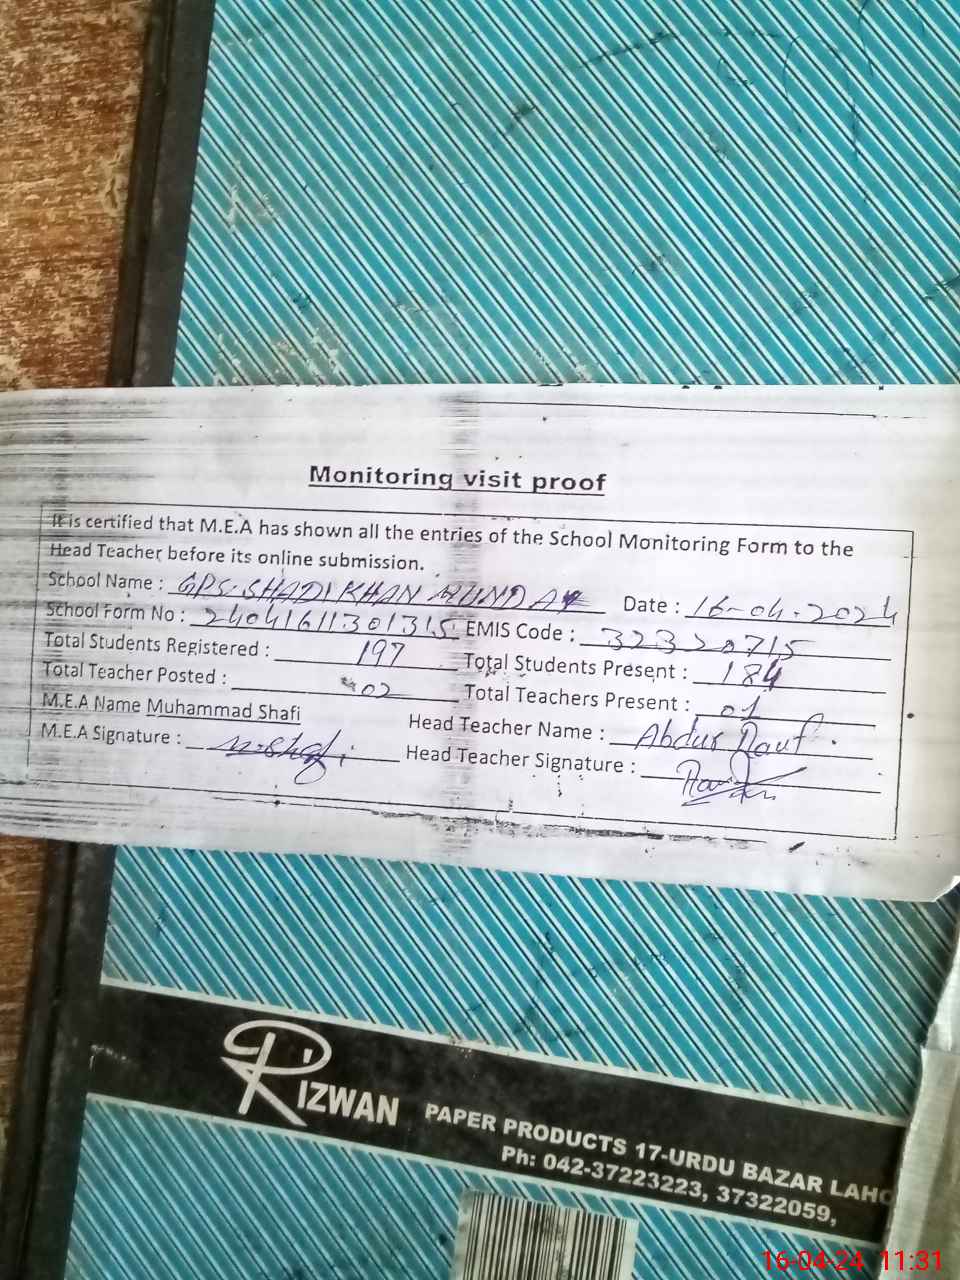 Monitoring visit proof
It is certified that M.E.A has shown all the entries of the School Monitoring Form to the
Head Teacher before its online submission.
School Name : GPS. SHADI KHAN MUNDA Date : 16-04-2024
School Form No : 24041611301315 EMIS Code : 32320715
Total Students Registered : 197 Total Students Present : 184
Total Teacher Posted : 02 Total Teachers Present : 01
M.E.A Name Muhammad Shafi Head Teacher Name : Abdur Rauf
M.E.A Signature : M.Shafi Head Teacher Signature :
RIZWAN PAPER PRODUCTS 17-URDU BAZAR LAHO
Ph: 042-37223223, 37322059,
16-04-24 11:31